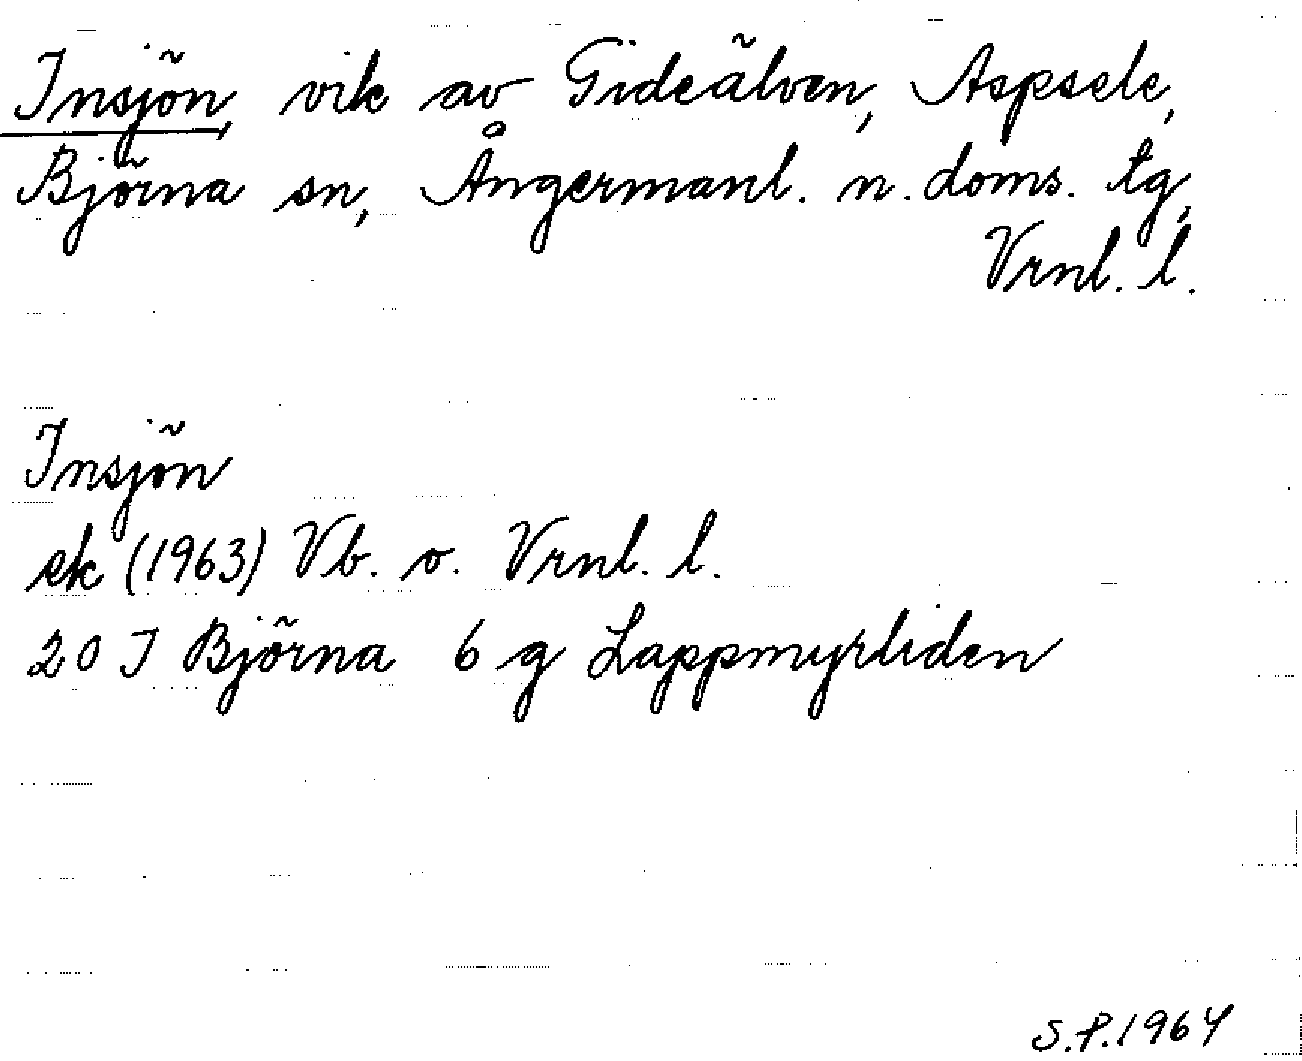 Insjön, vik av Gideälven, Aspsele,
Björna sn, Ångermanl. n. doms. tg,
Vrnl. l.
Insjön
ek (1963) Vb. o. Vrnl. l.
20 I Björna 6 g Lappmyrliden
S.P. 1964